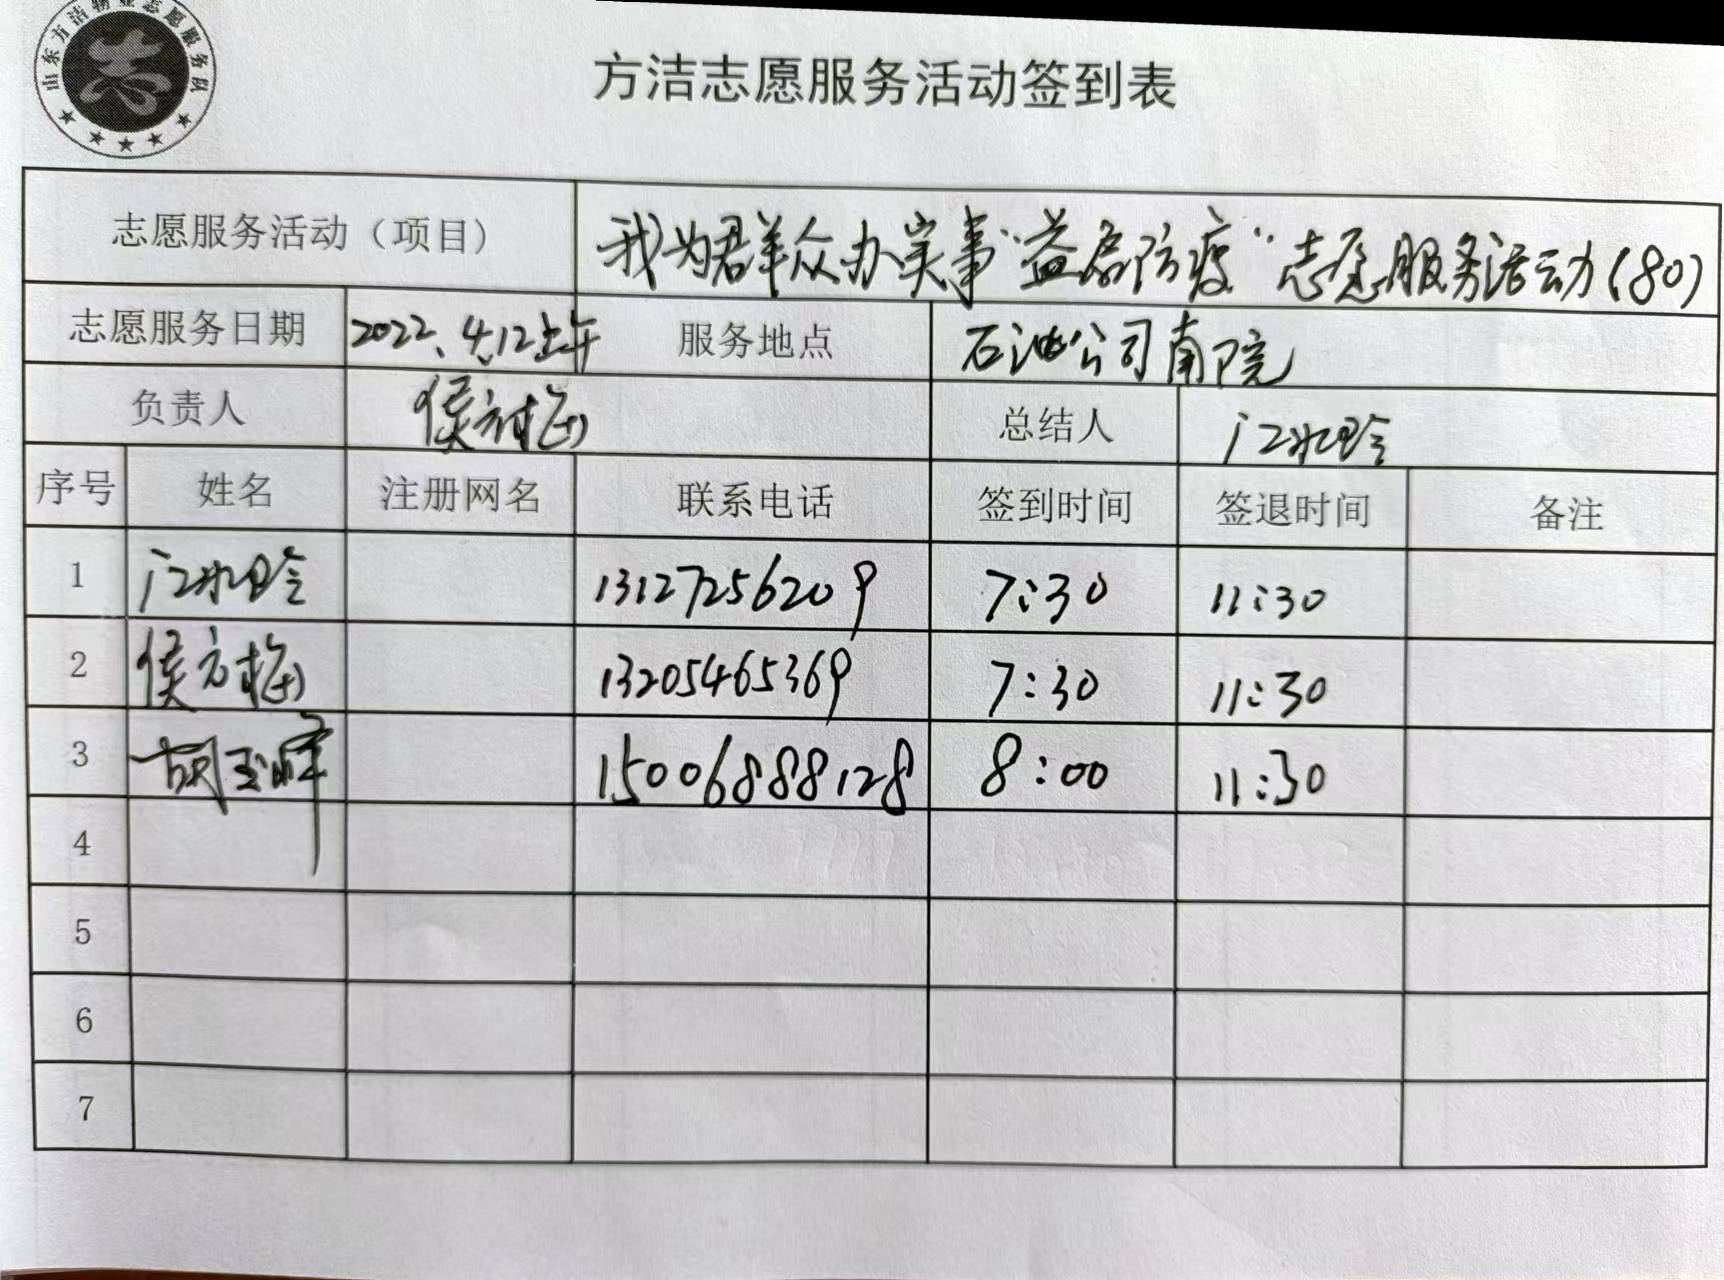 山东方洁物业志愿服务队
志
方洁志愿服务活动签到表
志愿服务活动（项目） 我为君羊众办实事“益启防疫”志愿服务活动(80)
志愿服务日期 2022.4.12上午 服务地点 石油公司南院
负责人 侯方梅 总结人 江水玲
序号 姓名 注册网名 联系电话 签到时间 签退时间 备注
1 江水玲 13127256209 7:30 11:30
2 侯方梅 13205465369 7:30 11:30
3 胡玉晖 15006888128 8:00 11:30
4
5
6
7